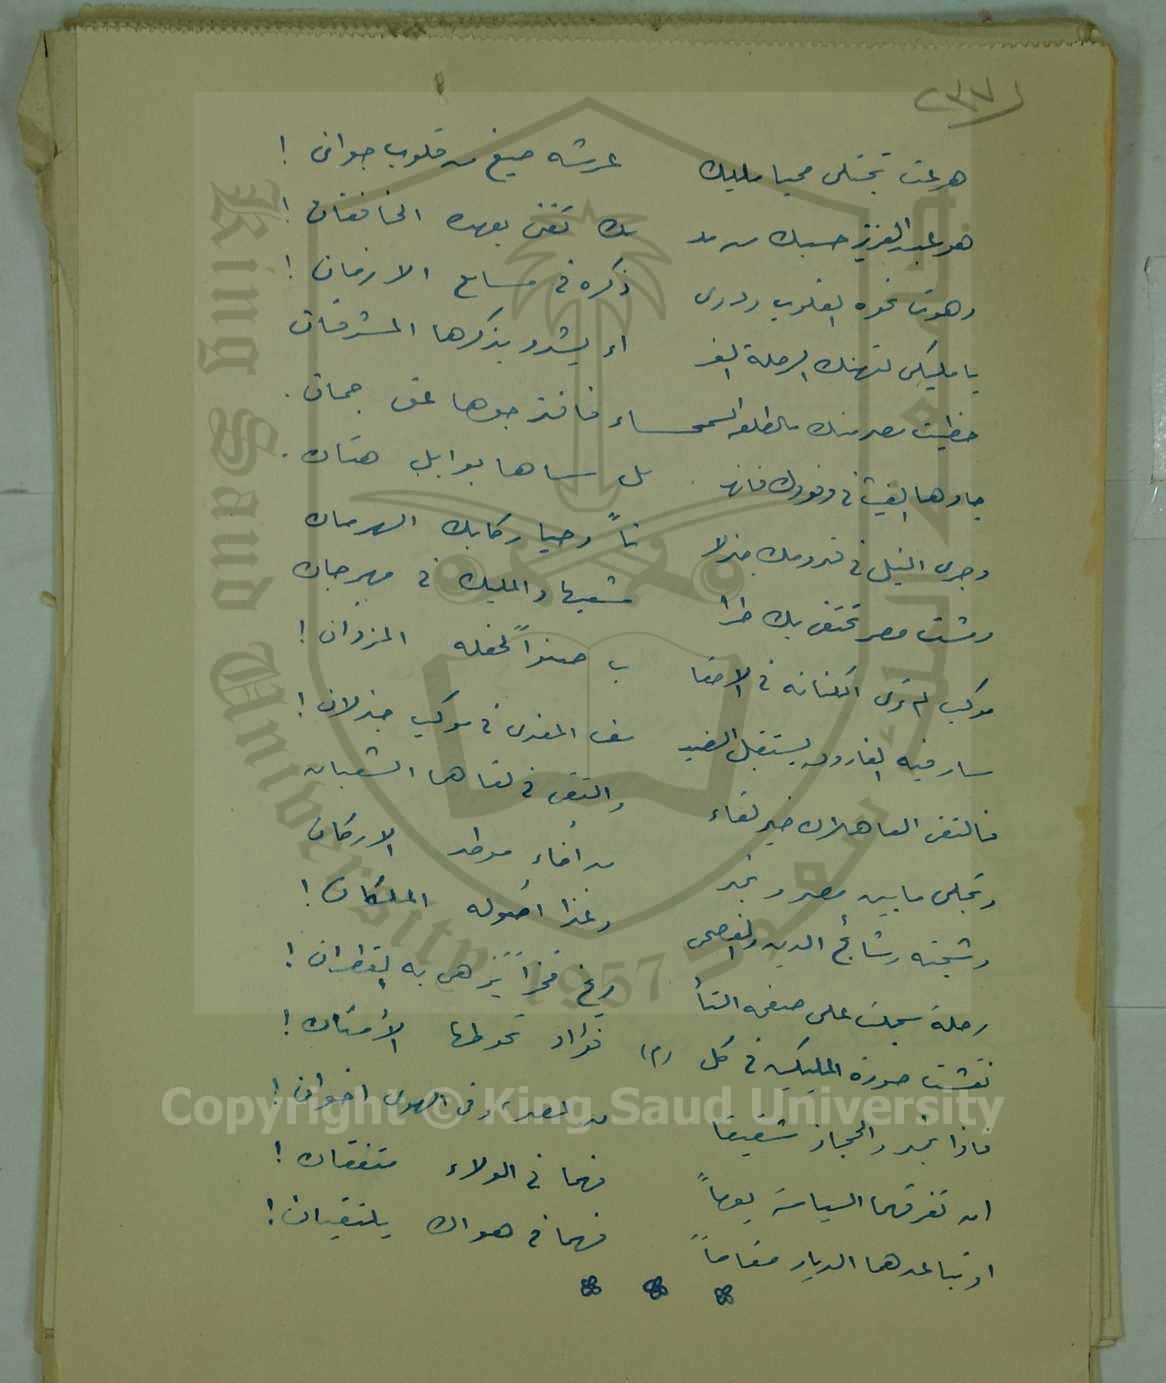 (٢٣٧)
هرعت تجتلي محيا مليك عرشه صيغ من قلوب جواني !
هو عبدالعزيز حسبك من مد بك تغنى بعهده الخافقان !
وهوت نحوه القلوب ودوى ذكره في مسامع الازمان !
يا مليكي لتهنك الرحلة الغر اء يشدو بذكرها المشرقان
حظيت مصر منك بالطلعة السمحـــاء فافتر جوها عن جمان .
جادها الغيث في وفودك فانهـ ـل سناها بوابل هتان .
وجرى النيل في قدومك جذلا ناً وحيا ركابك الهرمان
ومشت مصر تحتفي بك طرا شعبها والمليك في مهرجان
موكب لم تر الكنانة في الاحقا ب صنواً لحفله المزدان !
سار فيه الفاروق يستقبل الضيـ ـف المفدى في موكب جذلان !
فالتقى العاهلان خير لقاء والتقى في لقاها الشعبان
وتجلى ما بين مصر ونجد من أخاء موطد الاركان
وشجته وشائج الدين والفصحى وغذا اصوله الملكان !
رحلة سجلت على صفحة التأ ريخ فخراً يزهى به القطران !
نقشت صورة المليكين في كل (م) فؤاد تحوطها الأمتان !
فاذا نجد والحجاز شقيقا ن لمصر وفي الهوى اخوان !
ان تفرقهما السياسة يوماً فهما في الولاء متفقان !
او تباعدهما الديار مقاماً فهما في هواك يلتقيان !
King Saud University
1957
Copyright © King Saud University